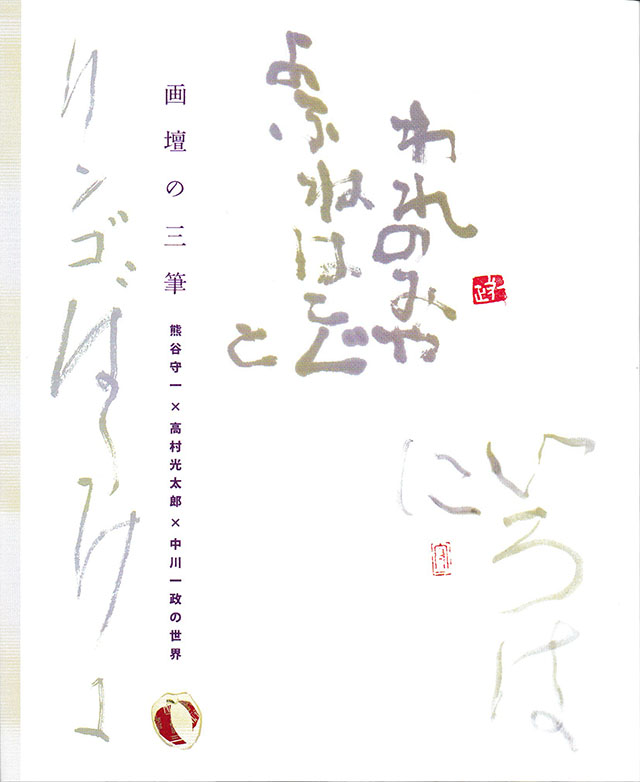 われのみや
よふねはこぐ
と
政
いろは
に
画壇の三筆
熊谷守一×高村光太郎×中川一政の世界
リンゴばたけに